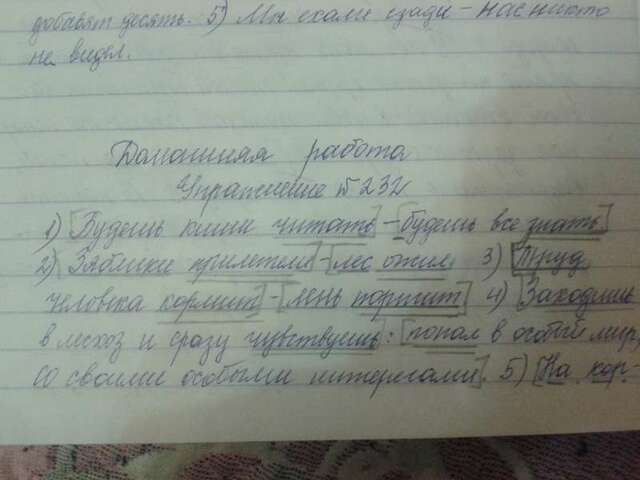 добавят десять. 5) Мы ехали сзади – нас никто
не видел.
Домашняя работа
Упражнение №232
1) [Будешь книги читать] – [будешь все знать]
2) [Зяблики прилетели] – [лес ожил] 3) [Труд
человека кормит] – [лень портит] 4) [Заходишь
в лесхоз и сразу чувствуешь: [попал в особый мир,
со своими особыми интересами]. 5) [На кор-